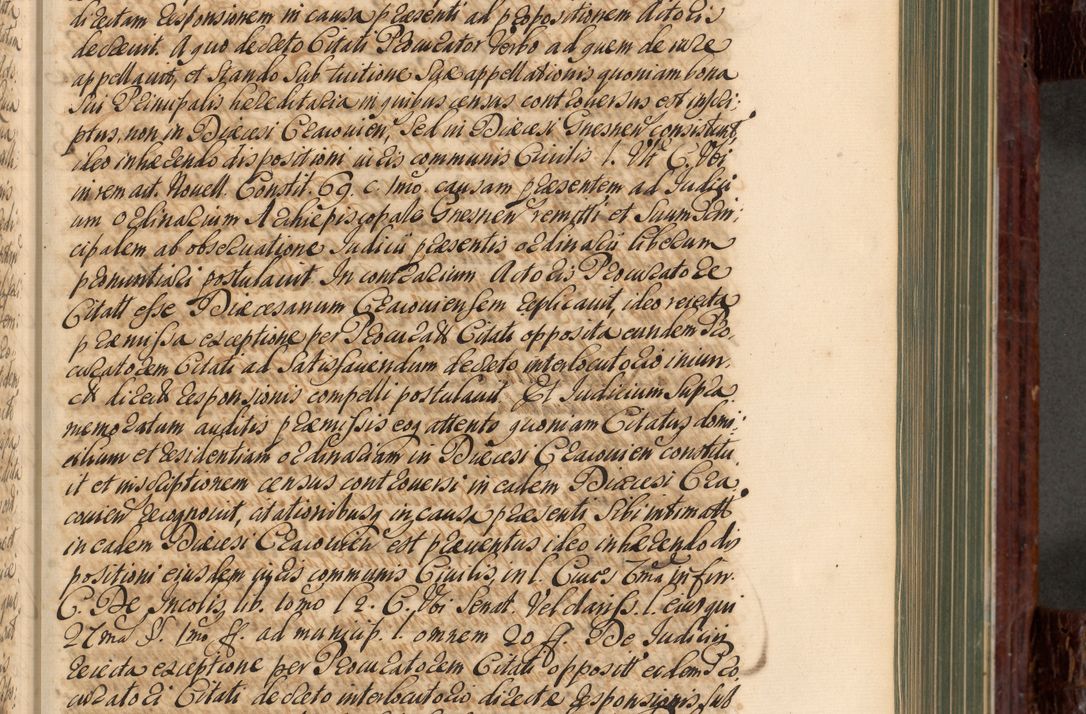 directam responsionem in causa praesenti ad propositionem Actoris
decrevit. A quo decreto Citati Procurator Verbo ad quem de iure
appellavit, et stando sub tuitione suae appellationis quoniam bona
sui Principalis haereditaria in quibus census controversus est inscri-
ptus, non in Diaecesi Cracovien, sed in Diaecesi Gnesnen consistunt
ideo inhaerendo dispositioni iuris communis Civilis l. Vlt. C. Vbi
in rem act. Novell. Constit. 69. c. 1mo. causam praesentem ad Judici-
um ordinarium Archiepiscopale Gnesnen remitti et suum Prin-
cipalem ab observatione Judicii praesentis ordinarii liberum
pronuntiari postulavit. In contrarium Actoris Procuratore
Citatt esse Diaecesanum Cracoviensem replicavit, ideo reiecta
praemissa exceptione per Procurator Citati opposita eundem Pro-
curatorem Citati ad satisfaciendum decreto interlocutorio iniun-
ctae directae responsionis compelli postulavit. Et Judicium supra
memoratum auditis praemissis eoq attento quoniam Citatus domi-
cilium et residentiam ordinariam in Diaecesi Cracovien constitu-
it et inscriptionem census controversi in eadem Diaecesi Cra-
covien recognovit, citationibusq in causa praesenti sibi intimatt
in eadem Diaecesi Cracovien est praeventus ideo inhaerendo dis
positioni eiusdem iuris communis Civilis, in l. Cives 7ma in fin.
C. De Incolis lib. 10mo l 2. C. Vbi Senat. Vel clariss. l. eius qui
27ma §. 1mo ff. ad municip. l. omnem 20 ff. De Judiciis
reiecta exceptione per Procuratorem Citati oppositt eidem Pro-
curatori Citati decreto interlocutorio directae responsionis, sub